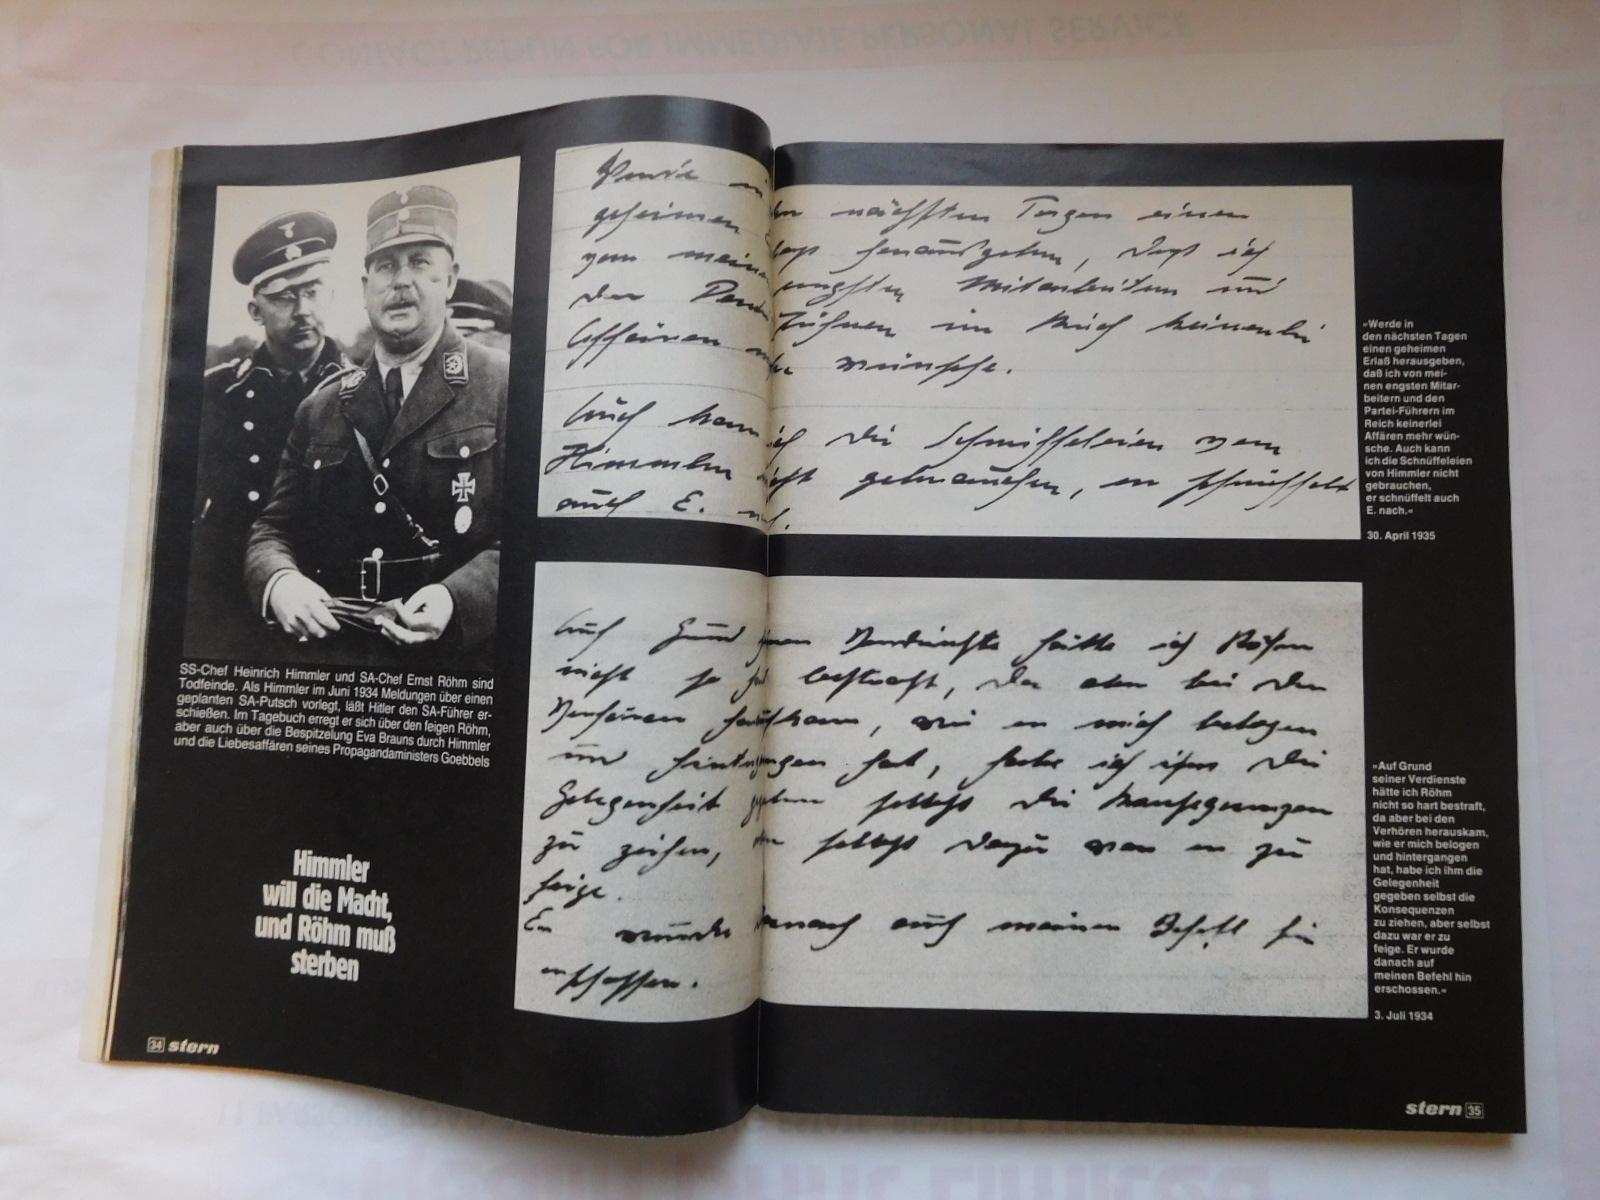 SS-Chef Heinrich Himmler und SA-Chef Ernst Röhm sind
Todfeinde. Als Himmler im Juni 1934 Meldungen über einen
geplanten SA-Putsch vorlegt, läßt Hitler den SA-Führer er-
schießen. Im Tagebuch erregt er sich über den feigen Röhm,
aber auch über die Bespitzelung Eva Brauns durch Himmler
und die Liebesaffären seines Propagandaministers Goebbels
Himmler
will die Macht,
und Röhm muß
sterben
34 stern
Werde in den nächsten Tagen einen
geheimen herausgeben, daß ich
von meinen engsten Mitarbeitern und
den Führern im Reich keinerlei
Affären mehr wünsche.
Auch kann ich die Schnüffeleien vom
Himmler nicht gebrauchen, er schnüffelt
auch E. nach.
Auf Grund seiner Verdienste hätte ich Röhm
nicht so hart bestraft, da aber bei den
Verhören herauskam, wie er mich belogen
und hintergangen hat, habe ich ihm die
Gelegenheit gegeben selbst die Konsequenzen
zu ziehen, aber selbst dazu war er zu
feige.
Er wurde danach auf meinen Befehl hin
erschossen.
»Werde in
den nächsten Tagen
einen geheimen
Erlaß herausgeben,
daß ich von mei-
nen engsten Mitar-
beitern und den
Partei-Führern im
Reich keinerlei
Affären mehr wün-
sche. Auch kann
ich die Schnüffeleien
von Himmler nicht
gebrauchen,
er schnüffelt auch
E. nach.«
30. April 1935
»Auf Grund
seiner Verdienste
hätte ich Röhm
nicht so hart bestraft,
da aber bei den
Verhören herauskam,
wie er mich belogen
und hintergangen
hat, habe ich ihm die
Gelegenheit
gegeben selbst die
Konsequenzen
zu ziehen, aber selbst
dazu war er zu
feige. Er wurde
danach auf
meinen Befehl hin
erschossen.«
3. Juli 1934
stern 35
CONTACT REDUN FOR IMMEDIATE PERSONAL SERVICE